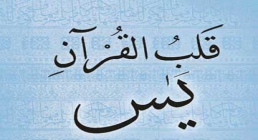 قَلبُ القُرآنِ
يس